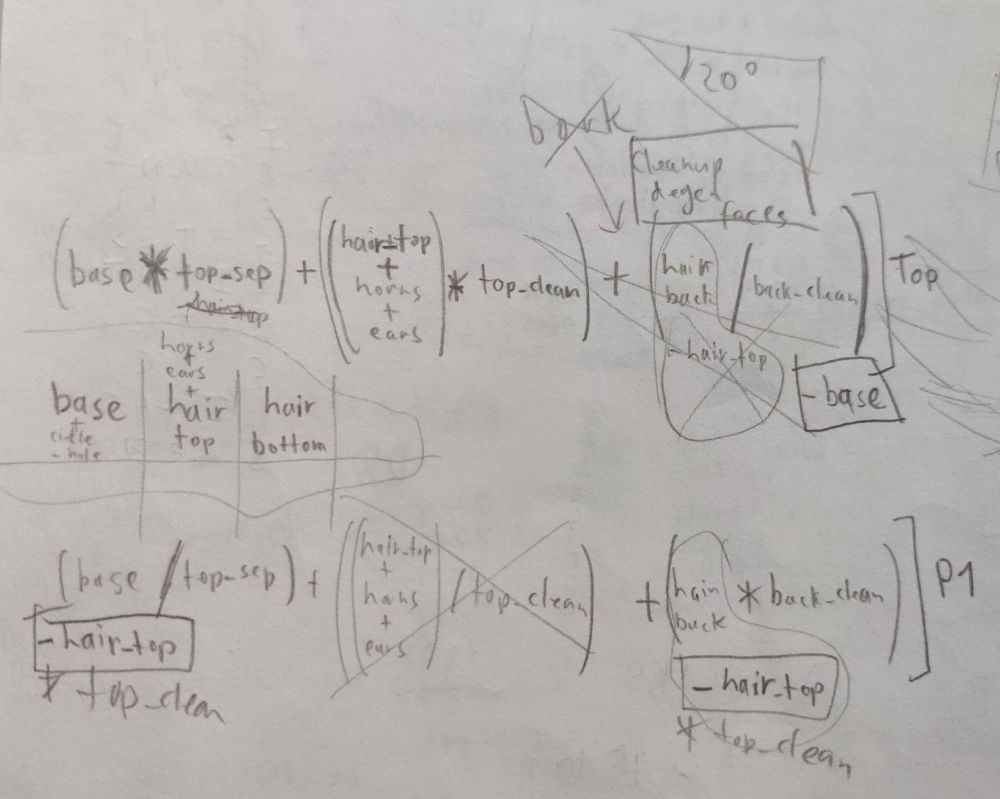 20°
back
cleanup
degen
faces
(base * top_sep) + ((hair_top + horns + ears) * top_clean) + (hair back / back_clean)] Top
hair_top
- hair_top
- base
horns
+
ears
+
base | hair | hair
+
circle
- hole
top | bottom
(base / top_sep) + ((hair_top + horns + ears) / top_clean) + (hair back * back_clean)] P1
- hair_top
* top_clean
- hair_top
* top_clean